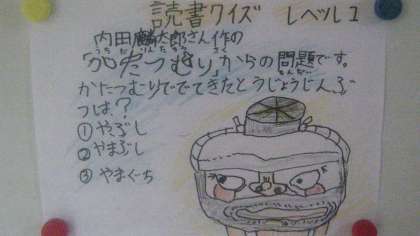 読書クイズ レベル1
内田麟太郎さん作の
うちだりんたろう さく
「かたつむり」からの問題です。
もんだい
かたつむりででてきたとうじょうじんぶ
つは？
①やぶし
②やまぶし
③やまぐち